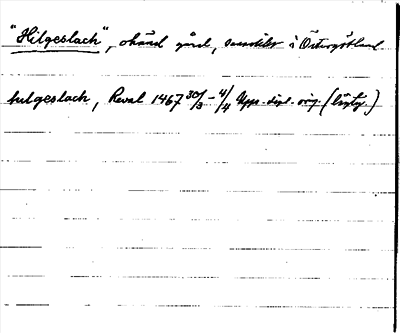 "Hilgeslach", okänd gård, sannolikt i Östergötland
hilgeslach, Reval 1467 30/3–4/4 Upps. dipl. orig. (lågty.)